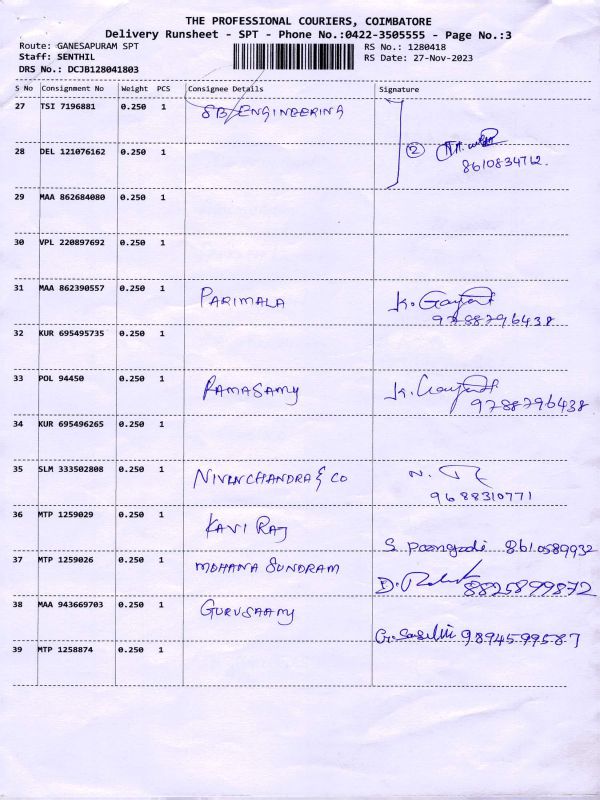 THE PROFESSIONAL COURIERS, COIMBATORE
Delivery Runsheet - SPT - Phone No.:0422-3505555 - Page No.:3
Route: GANESAPURAM SPT RS No.: 1280418
Staff: SENTHIL RS Date: 27-Nov-2023
DRS No.: DCJB128041803
S No Consignment No Weight PCS Consignee Details Signature
27 TSI 7196881 0.250 1 SB ENGINEERING
28 DEL 121076162 0.250 1 2
8610834712.
29 MAA 862684080 0.250 1
30 VPL 220897692 0.250 1
31 MAA 862390557 0.250 1 PARIMALA K. Gayat
9788796438
32 KUR 695495735 0.250 1
33 POL 94450 0.250 1 RAMASAMY K. Gayat
9788796438
34 KUR 695496265 0.250 1
35 SLM 333502808 0.250 1 NIVENCHANDRA & CO N.
9688310771
36 MTP 1259029 0.250 1 KAVI RAJ S. Poongodi 8610589932
37 MTP 1259026 0.250 1 MOHANA SUNDRAM D. 8825899872
38 MAA 943669703 0.250 1 GURUSAAMY G. Saselvi 9894599587
39 MTP 1258874 0.250 1